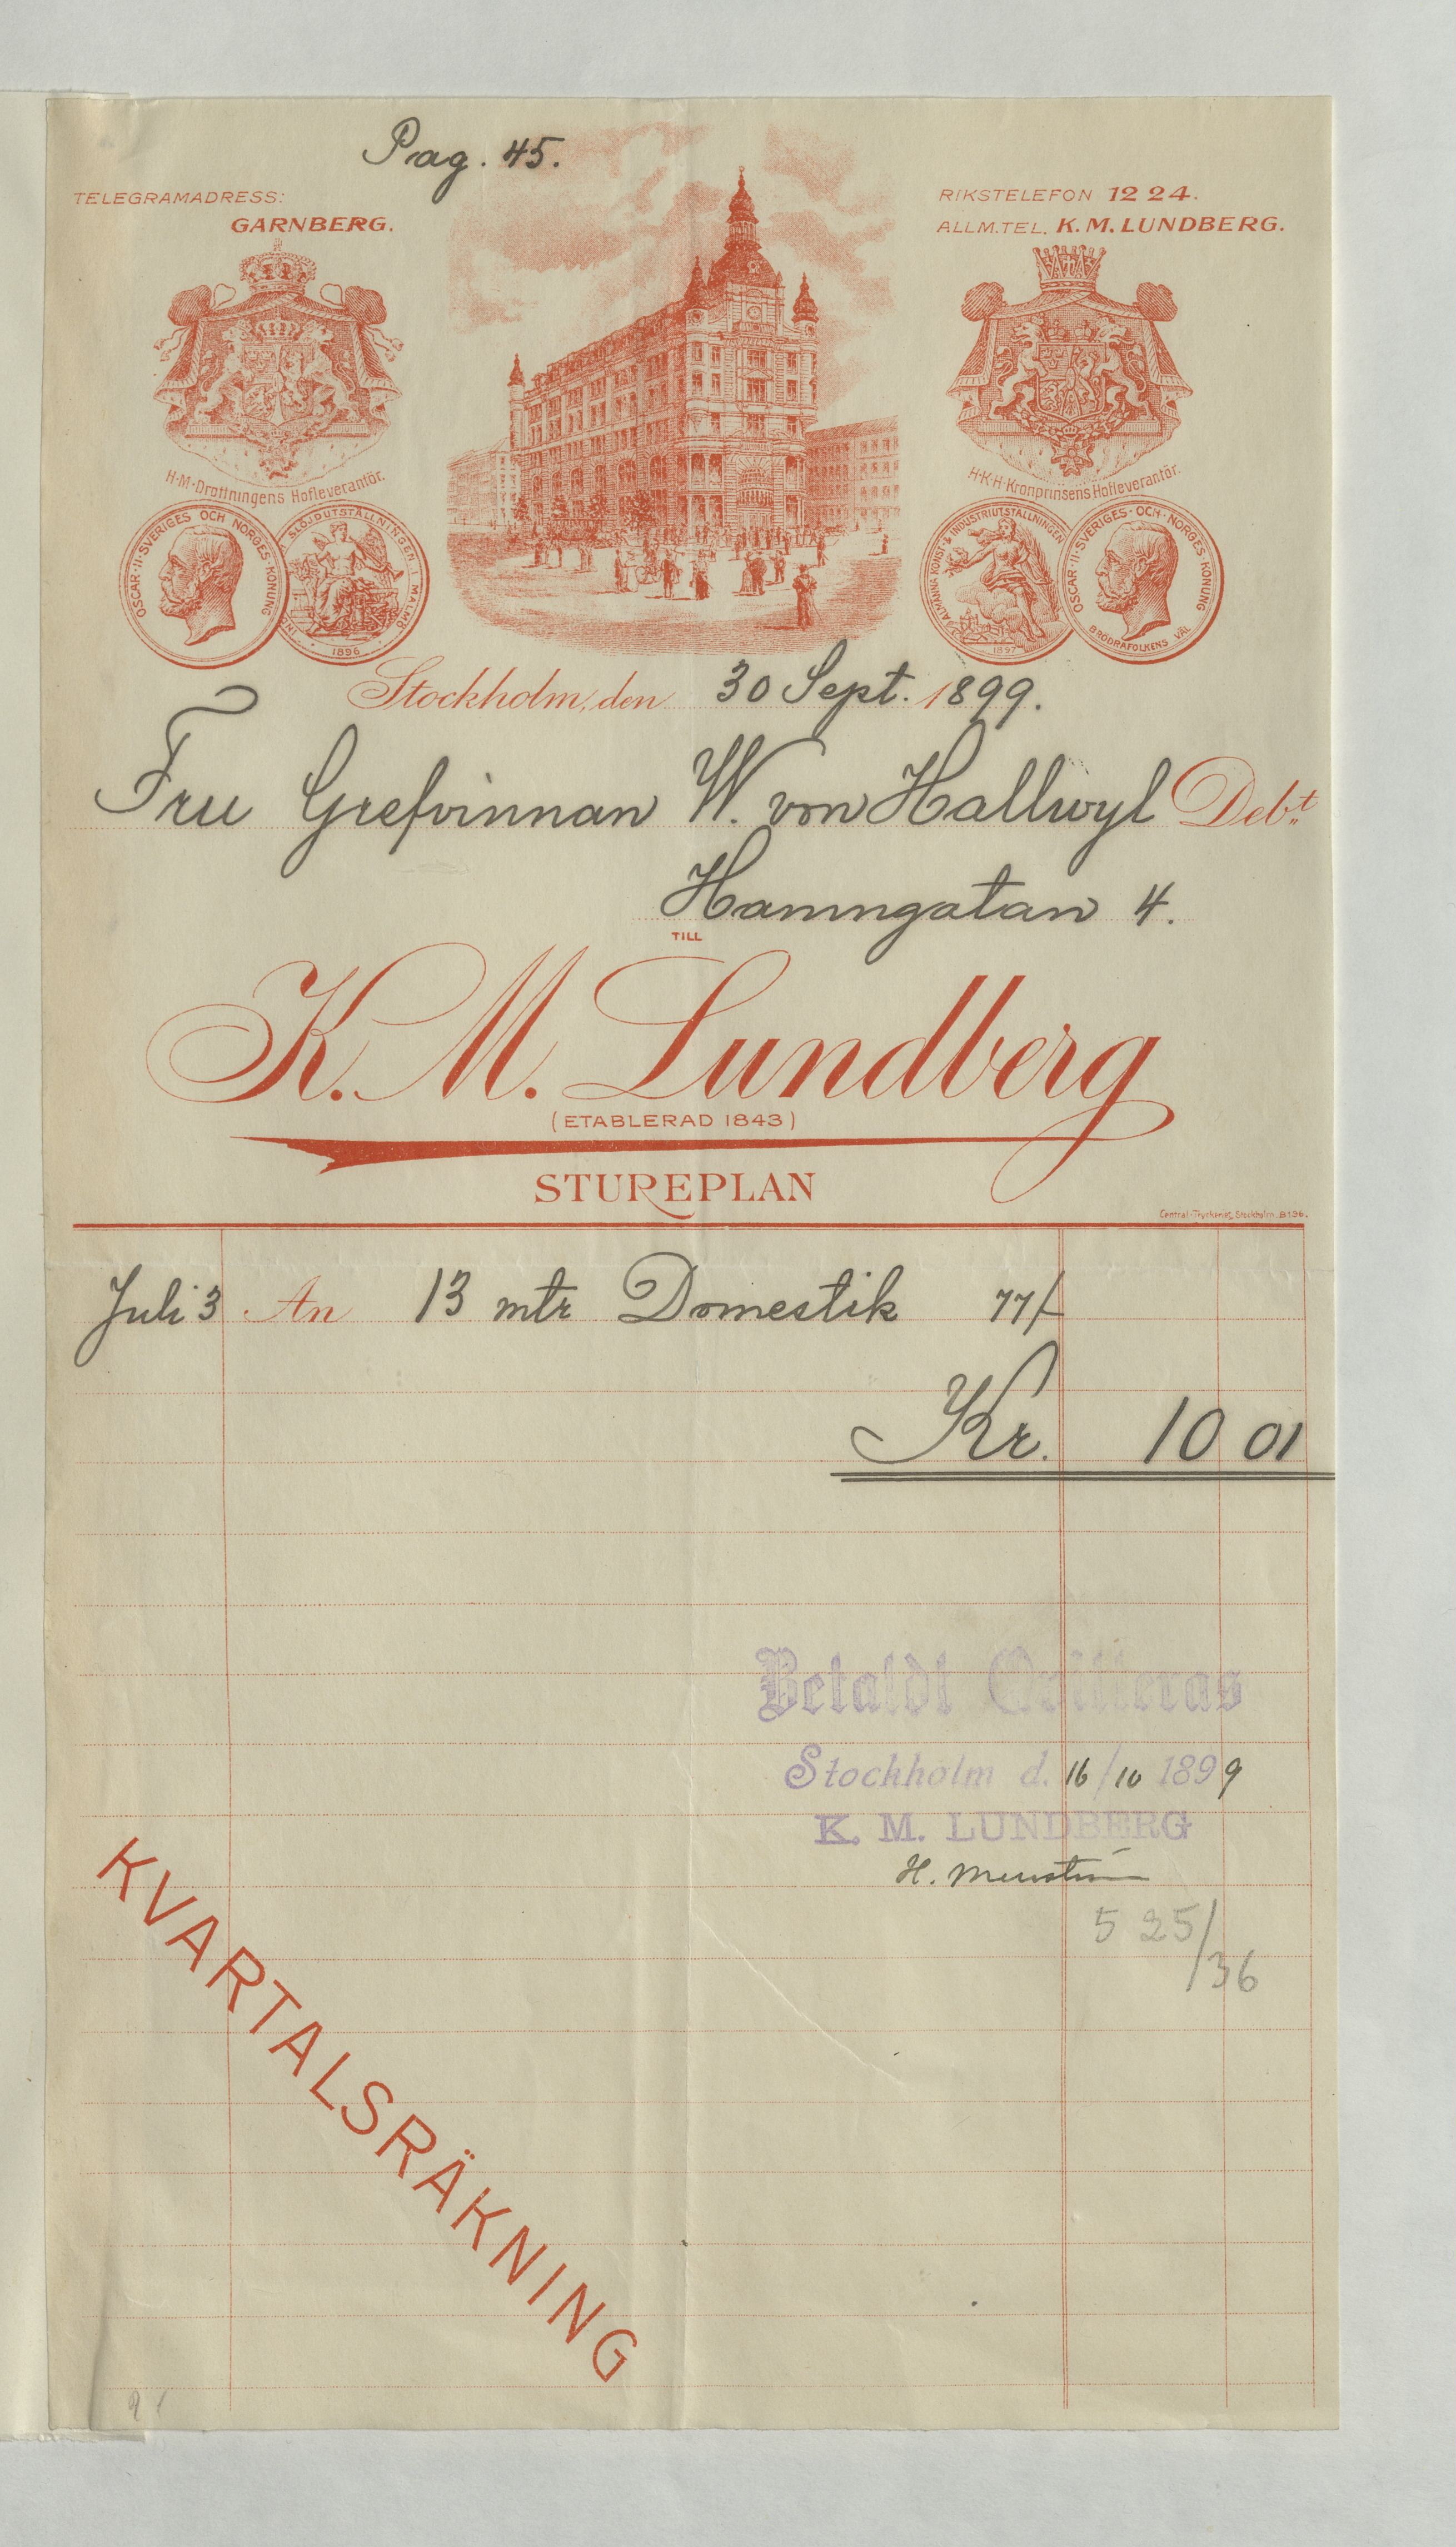 Pag. 45.
TELEGRAMADRESS:
GARNBERG.
RIKSTELEFON 1224.
ALLM.TEL. K. M. LUNDBERG.
H·M·Drottningens Hofleverantör.
H·K·H·Kronprinsens Hofleverantör.
OSCAR·II·SVERIGES OCH NORGES·KONUNG
SLÖJDUTSTÄLLNINGEN I MALMÖ
1896
ALLMÄNNA KONST & INDUSTRIUTSTÄLLNINGEN
1897
OSCAR·II·SVERIGES·OCH·NORGES KONUNG
BRÖDRAFOLKENS VÄL
Stockholm, den 30 Sept. 1899.
Fru Grefvinnan W. von Hallwyl Debt
Hamngatan 4.
TILL
K. M. Lundberg
(ETABLERAD 1843)
STUREPLAN
Central-Tryckeriet, Stockholm. B136.
Juli 3 An 13 mtr Domestik 77/-
Kr. 10 01
Betaldt Qvitteras
Stockholm d. 16/10 1899
K. M. LUNDBERG
H.
5 25/36
KVARTALSRÄKNING